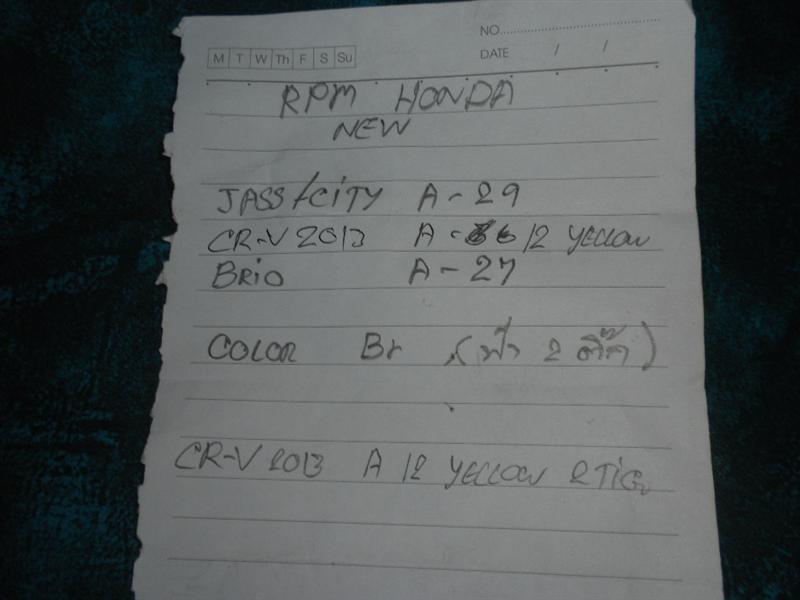 NO.
M T W Th F S Su
DATE / /
RPM HONDA
NEW
JASS/CITY A-29
CR-V 2013 A- 12 YELLOW
BRIO A-27
COLOR Br (ฟ้า 2 ติ๊ก)
CR-V 2013 A 12 YELLOW 2 TIC